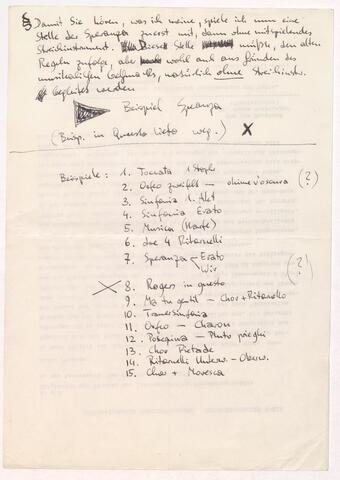 § Damit Sie hören, was ich meine, spiele ich nun eine
Stelle der Speranza zuerst mit, dann ohne mitspielendes
Streichinstrument. Diese Stelle müßte, den alten
Regeln zufolge, aber wohl auch aus Gründen des
musikalischen Geschmacks, natürlich ohne Streichinstr.
begleitet werden
Beispiel Speranza
(Beisp. in Questo lieto weg.) X
Beispiele: 1. Toccata 1 Stophe
2. Orfeo zweifelt — ohime v'oscura (?)
3. Sinfonia 1. Akt
4. Sinfonia Erato
5. Musica (Harfe)
6. die 4 Ritornelli
7. Speranza — Erato
Wir (?)
8. Rogers in questo
9. Ma tu gentil — Chor + Ritornello
10. Trauersinfonia
11. Orfeo — Charon
12. Proserpina — Pluto prieghi
13. Chor Pietade
14. Ritornelli Unterw. - Oberw.
15. Chor + Moresca